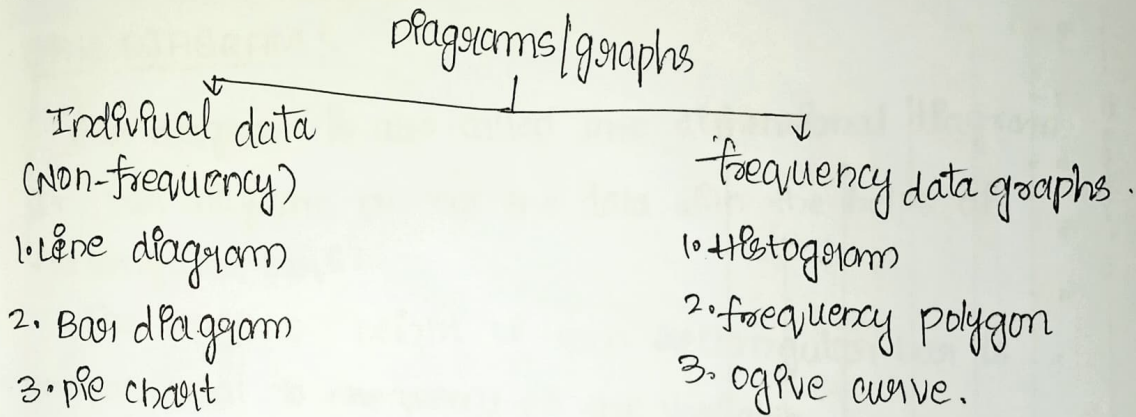 Diagrams/graphs
Indiviual data
(Non-frequency)
1. Line diagram
2. Bar diagram
3. pie chart
frequency data graphs.
1. Histogram
2. frequency polygon
3. ogive curve.